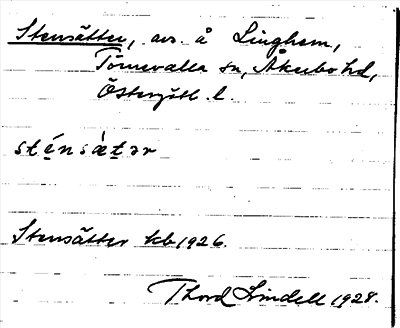 Stensätter, avs. å Linghem,
Törnevalla sn, Åkerbo hd,
Östergötl. l.
sténsæ̀tər
Stensätter kb 1926.
Thord Lindell 1928.